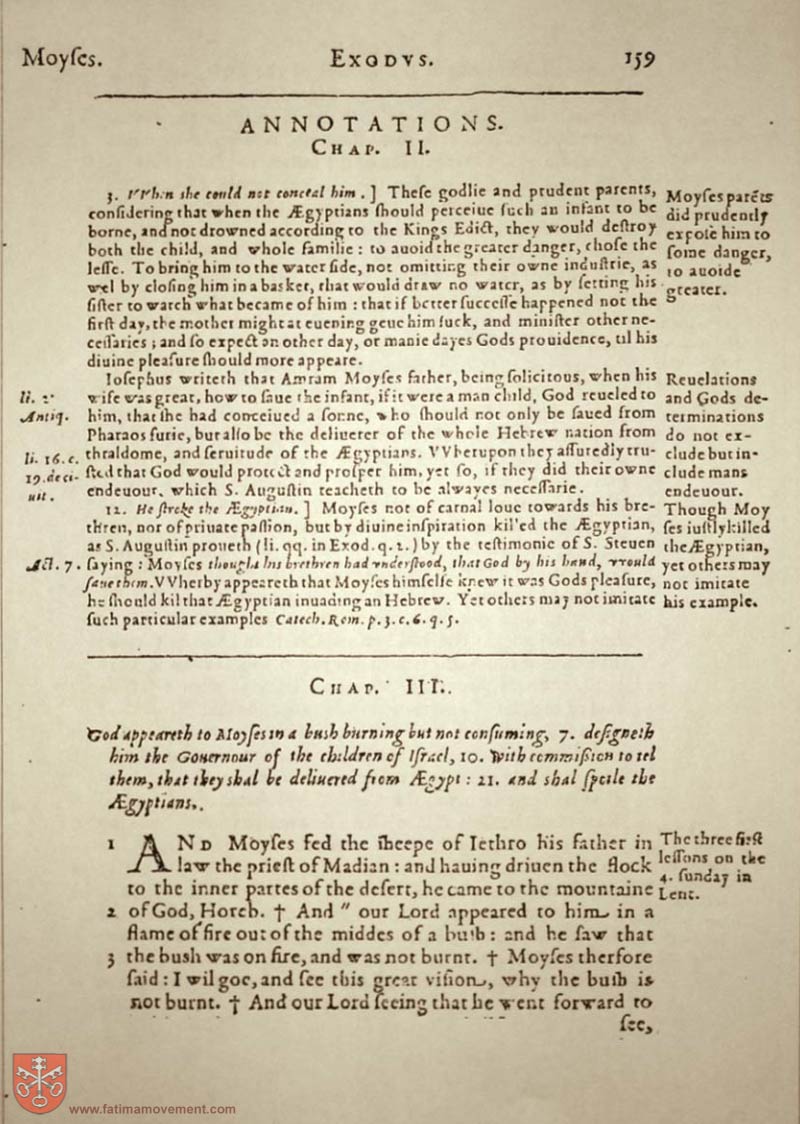 Moyſes.
EXODVS.
159
ANNOTATIONS.
CHAP. II.
3. VVhen she could not conceal him. ] Theſe godlie and prudent parents,
conſidering that when the Ægyptians ſhould perceiue ſuch an infant to be
borne, and not drowned according to the Kings Edict, they would deſtroy
both the child, and whole familie : to auoid the greater danger, choſe the
leſſe. To bring him to the water ſide, not omitting their owne induſtrie, as
wel by cloſing him in a basket, that would draw no water, as by ſetting his
ſiſter to watch what became of him : that if better ſucceſſe happened not the
firſt day, the mother might at euening geue him ſuck, and miniſter other ne-
ceſſaries ; and ſo expect an other day, or manie dayes Gods prouidence, til his
diuine pleaſure ſhould more appeare.
Moyſes parẽts
did prudently
expoſe him to
ſome danger,
to auoide
greater.
Ioſephus writeth that Amram Moyſes father, being ſolicitous, when his
wife was great, how to ſaue the infant, if it were a man child, God reueled to
him, that ſhe had conceiued a ſonne, who ſhould not only be ſaued from
Pharaos furie, but alſo be the deliuerer of the whole Hebrew nation from
thraldome, and ſeruitude of the Ægyptians. VVherupon they aſſuredly tru-
ſted that God would protect and proſper him, yet ſo, if they did their owne
endeuour, which S. Auguſtin teacheth to be alwayes neceſſarie.
li. 2.
Antiq.
li. 16. c.
19. deci-
uit.
Reuelations
and Gods de-
terminations
do not ex-
clude but in-
clude mans
endeuour.
12. He stroke the Ægyptian. ] Moyſes not of carnal loue towards his bre-
thren, nor of priuate paſſion, but by diuine inſpiration kil'ed the Ægyptian,
as S. Auguſtin proueth (li. qq. in Exod. q. 2.) by the teſtimonie of S. Steuen
ſaying : Moyſes thought his brethren had vnderſtood, that God by his hand, vvould
ſaue them. VVherby appeareth that Moyſes himſelfe knew it was Gods pleaſure,
he ſhould kil that Ægyptian inuading an Hebrew. Yet others may not imitate
ſuch particular examples Catech. Rom. p. 3. c. 6. q. 5.
Act. 7.
Though Moy
ſes iuſtly killed
the Ægyptian,
yet others may
not imitate
his example.
CHAP. III.
God appeareth to Moyſes in a bush burning but not conſuming, 7. deſigneth
him the Gouernour of the children of Iſrael, 10. With commiſſion to tel
them, that they shal be deliuered from Ægypt : 21. and shal ſpoile the
Ægyptians.
1 AND Moyſes fed the ſheepe of Iethro his father in
law the prieſt of Madian : and hauing driuen the flock
to the inner partes of the deſert, he came to the mountaine
2 of God, Horeb. † And " our Lord appeared to him in a
flame of fire out of the middes of a buſh : and he ſaw that
3 the bush was on fire, and was not burnt. † Moyſes therfore
ſaid : I wil goe, and ſee this great viſion, why the buſh is
not burnt. † And our Lord ſeeing that he went forward to
ſee,
The three firſt
leſſons on the
4. ſunday in
Lent.
www.fatimamovement.com